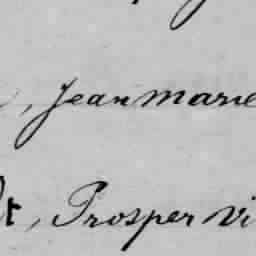 , Jean marie
t, Prosper vi